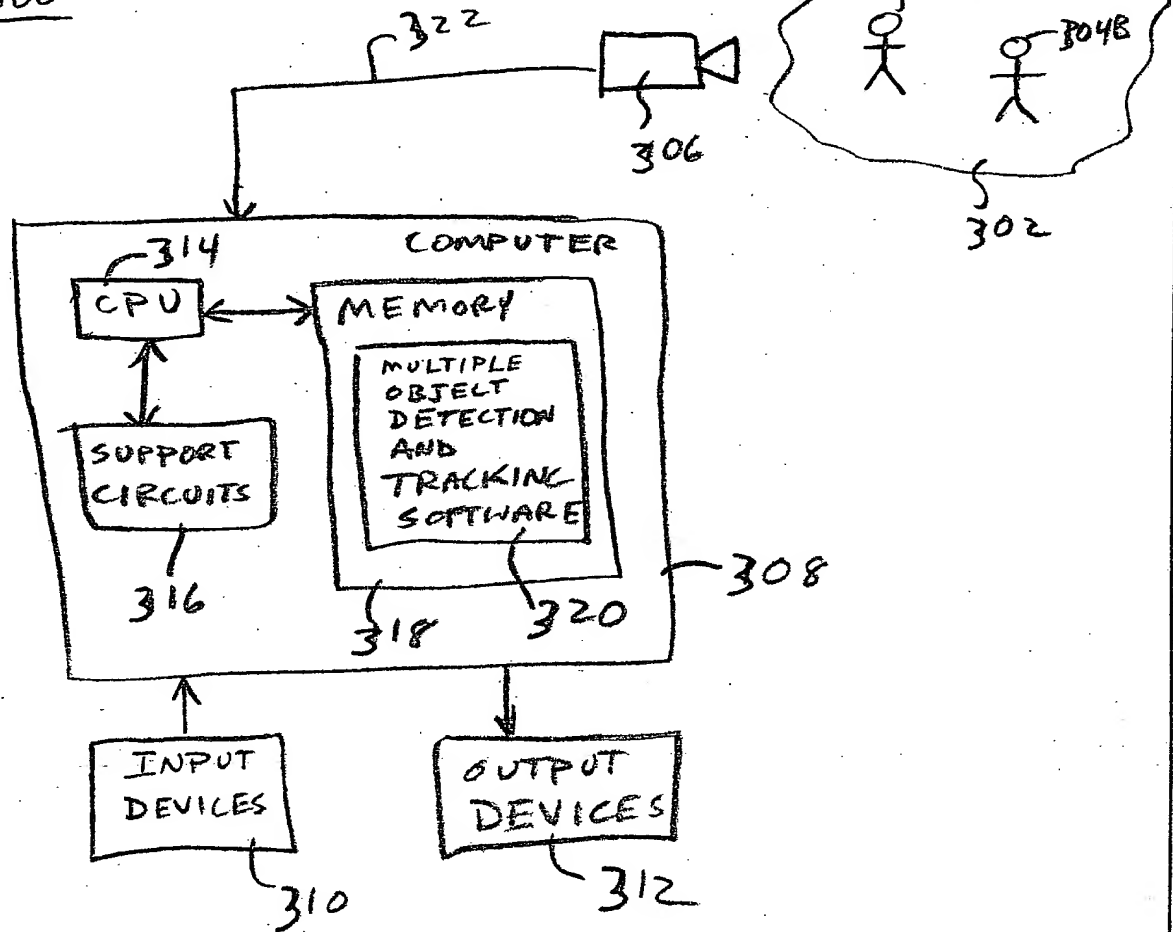 322
304B
306
302
COMPUTER
314
CPU
MEMORY
MULTIPLE
OBJECT
DETECTION
AND
TRACKING
SOFTWARE
SUPPORT
CIRCUITS
308
316
318
320
INPUT
DEVICES
OUTPUT
DEVICES
310
312